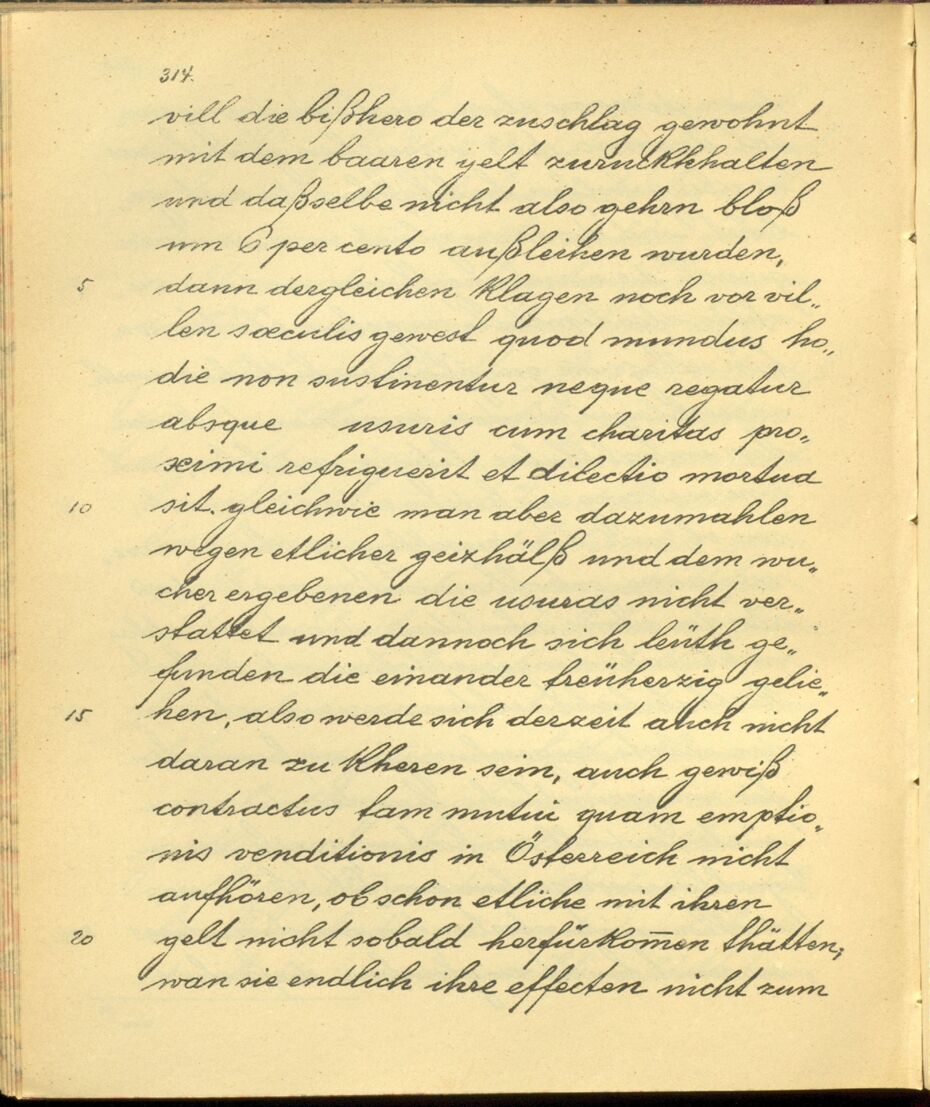 314.
vill die bißhero der zuschlag gewohnt
mit dem baaren gelt zuruckkhalten
und daßselbe nicht also gehrn bloß
um 6 per cento außleihen wurden,
5 dann dergleichen klagen noch vor vil„
len sæculis gewest quod mundus ho„
die non sustinentur neque regatur
absque usuris cum charitas pro„
ximi refriguerit et dilectio mortua
10 sit. gleichwie man aber dazumahlen
wegen etlicher geizhälß und dem wu„
cher ergebenen die usuras nicht ver„
stattet und dannoch sich leüth ge„
funden die einander treüherzig gelie„
15 hen, also werde sich derzeit auch nicht
daran zu kheren sein, auch gewiß
contractus tam mutui quam emptio„
nis venditionis in Österreich nicht
aufhören, ob schon etliche mit ihren
20 gelt nicht sobald herfürkom̄en thätten;
wan sie endlich ihre effecten nicht zum